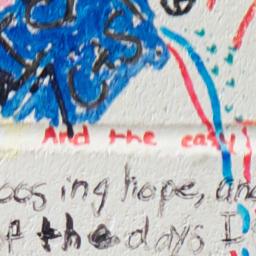 And the easy
oosing hope, and
f the days I